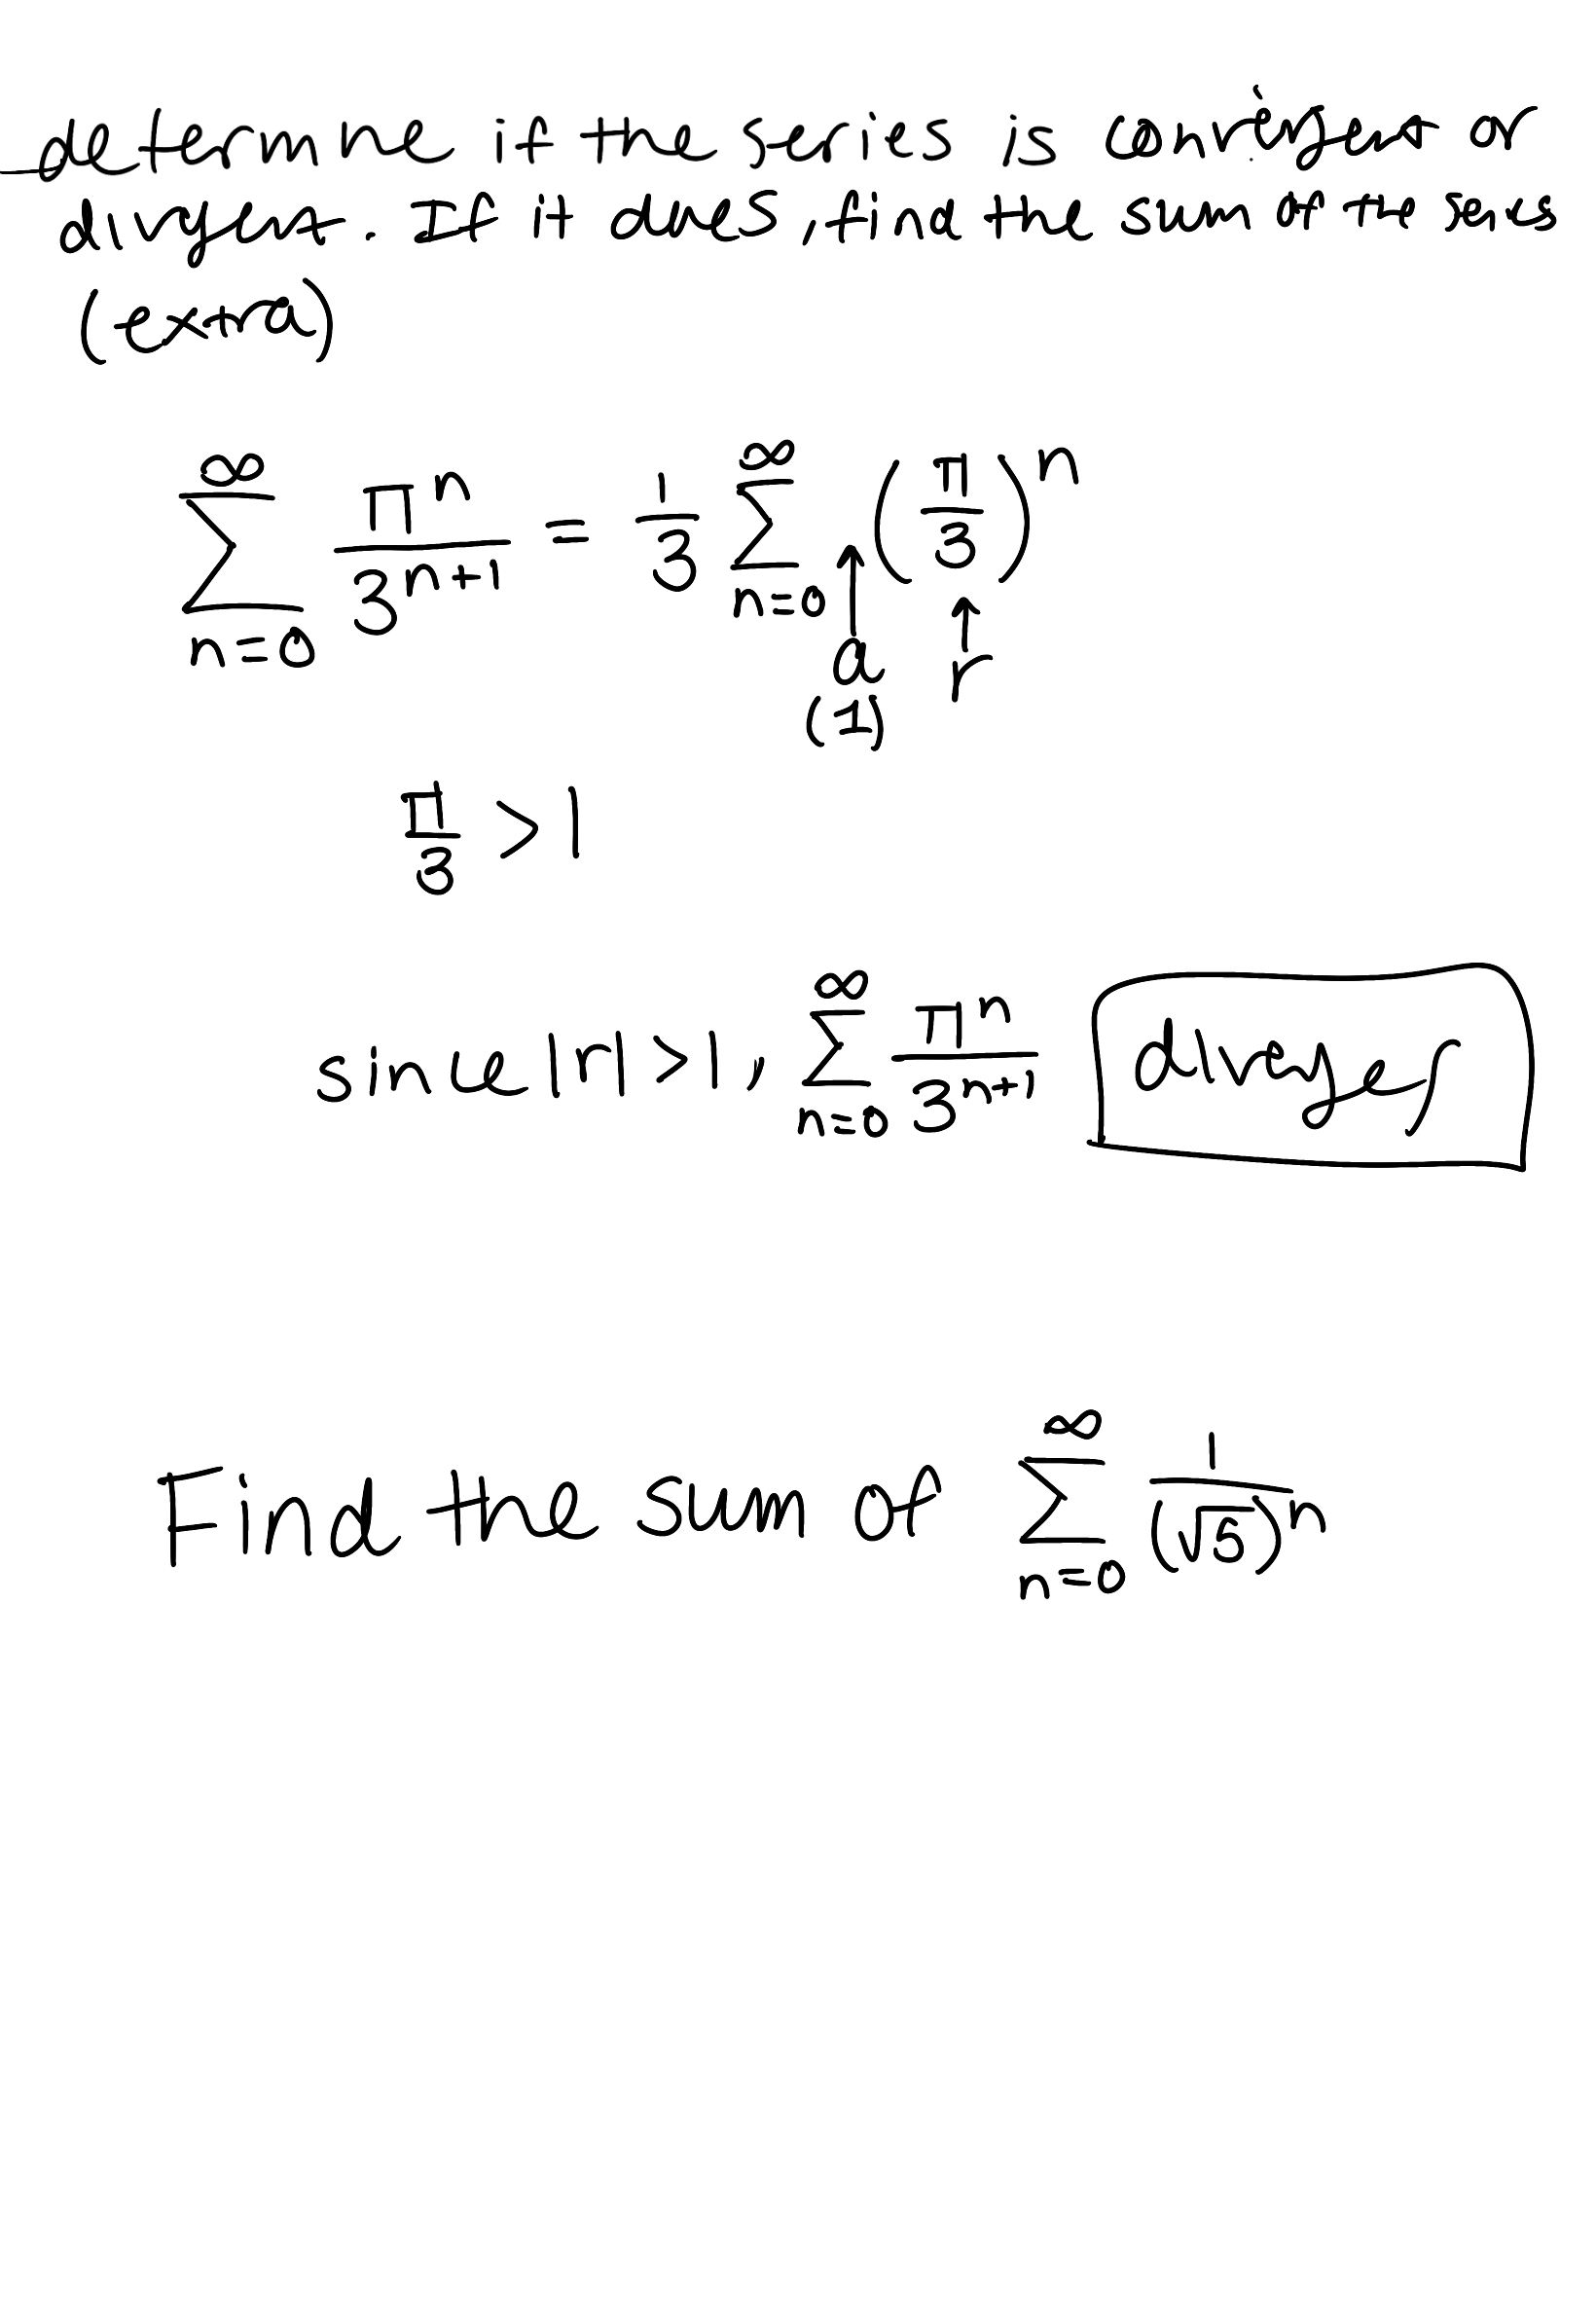 determine if the series is convergent or
divergent. If it does, find the sum of the series
(extra)
∞ ∑ n=0 π^n / 3^(n+1) = 1/3 ∞ ∑ n=0 (π/3)^n
↑ a (1) ↑ r
π/3 > 1
since |r| > 1, ∞ ∑ n=0 π^n / 3^(n+1) diverges
Find the sum of ∞ ∑ n=0 1 / (√5)^n